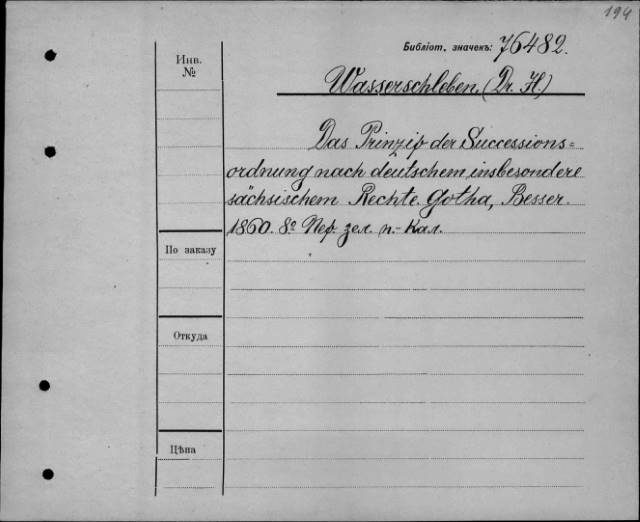 194
Библіот. значекъ: 76482.
Инв.
№
Wasserschleben, (Dr. H)
Das Prinzip der Successions=
ordnung nach deutschem, insbesondere
sächsischem Rechte. Gotha, Besser.
1860. 8º Пер. зел. п.- Кал.
По заказу
Откуда
Цѣна